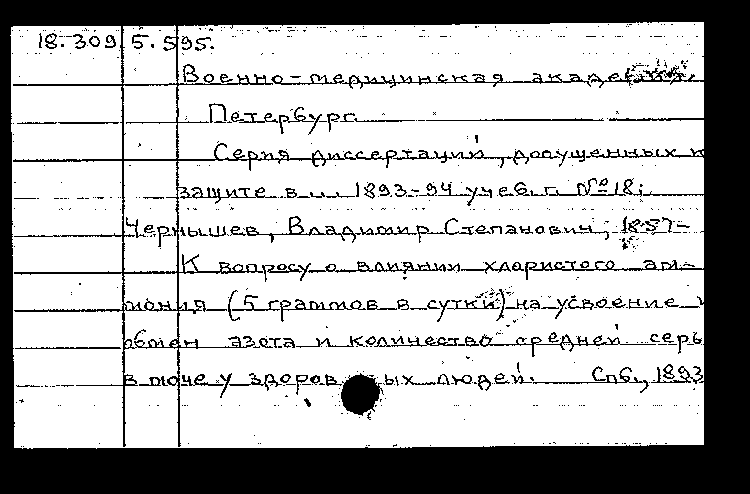 18.309.5.595.
Военно-медицинская академия.
Петербург.
Серия диссертаций, допущенных к
защите в ... 1893-94 учеб. г. №18;
Чернышев, Владимир Степанович, 1857-
К вопросу о влиянии хлористого ам-
мония (5 граммов в сутки) на усвоение и
обмен азота и количество средней серы
в моче у здоровых людей. Спб., 1893